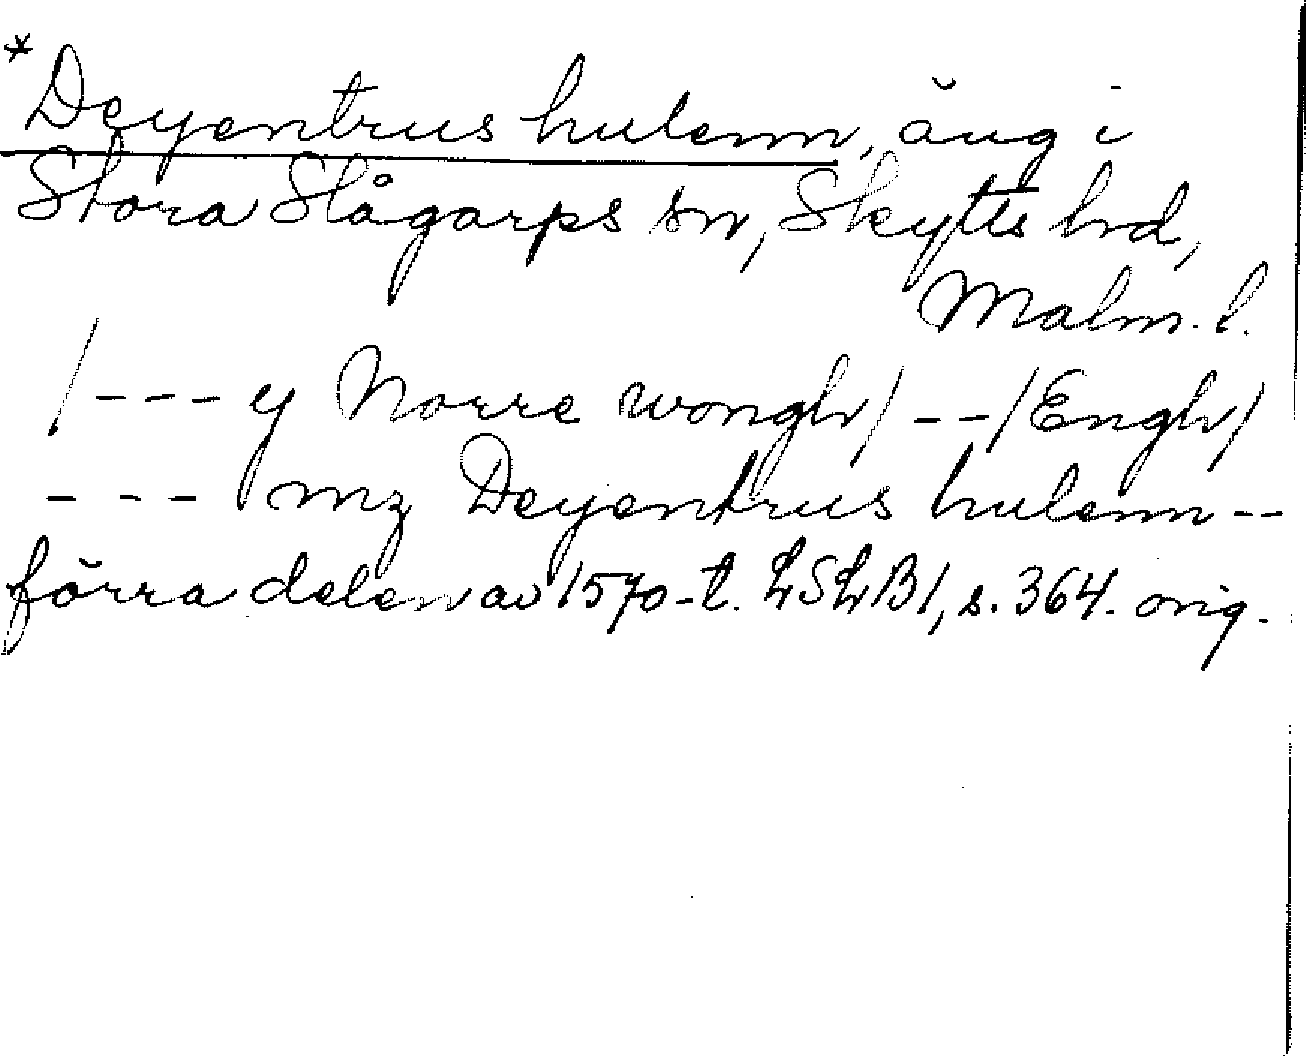 *Deyentrus hulenn, äng i
Stora Slågarps sn, Skytts hd,
Malm. l.
/--- y Norre wongh/ --/Engh/
--- mz Deyentrus hulenn--
förra delen av 1570-t. LSLB1, s. 364. orig.